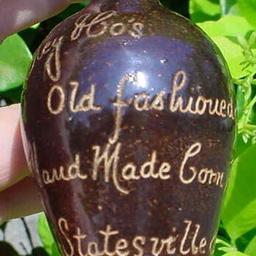 Old fashioned
Hand Made Corn
Statesville